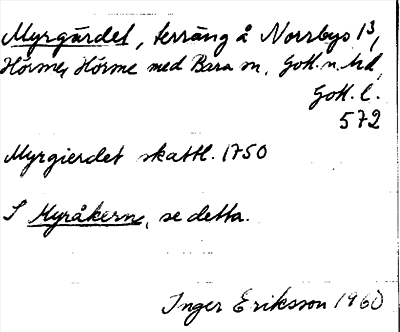 Myrgärdet, terräng å Norrbys 1³,
Hörme, Hörme med Bara sn, Gotl. n. hd,
Gotl. l.
572
Myrgierdet skattl. 1750
I Myråkern, se detta.
Inger Eriksson 1960